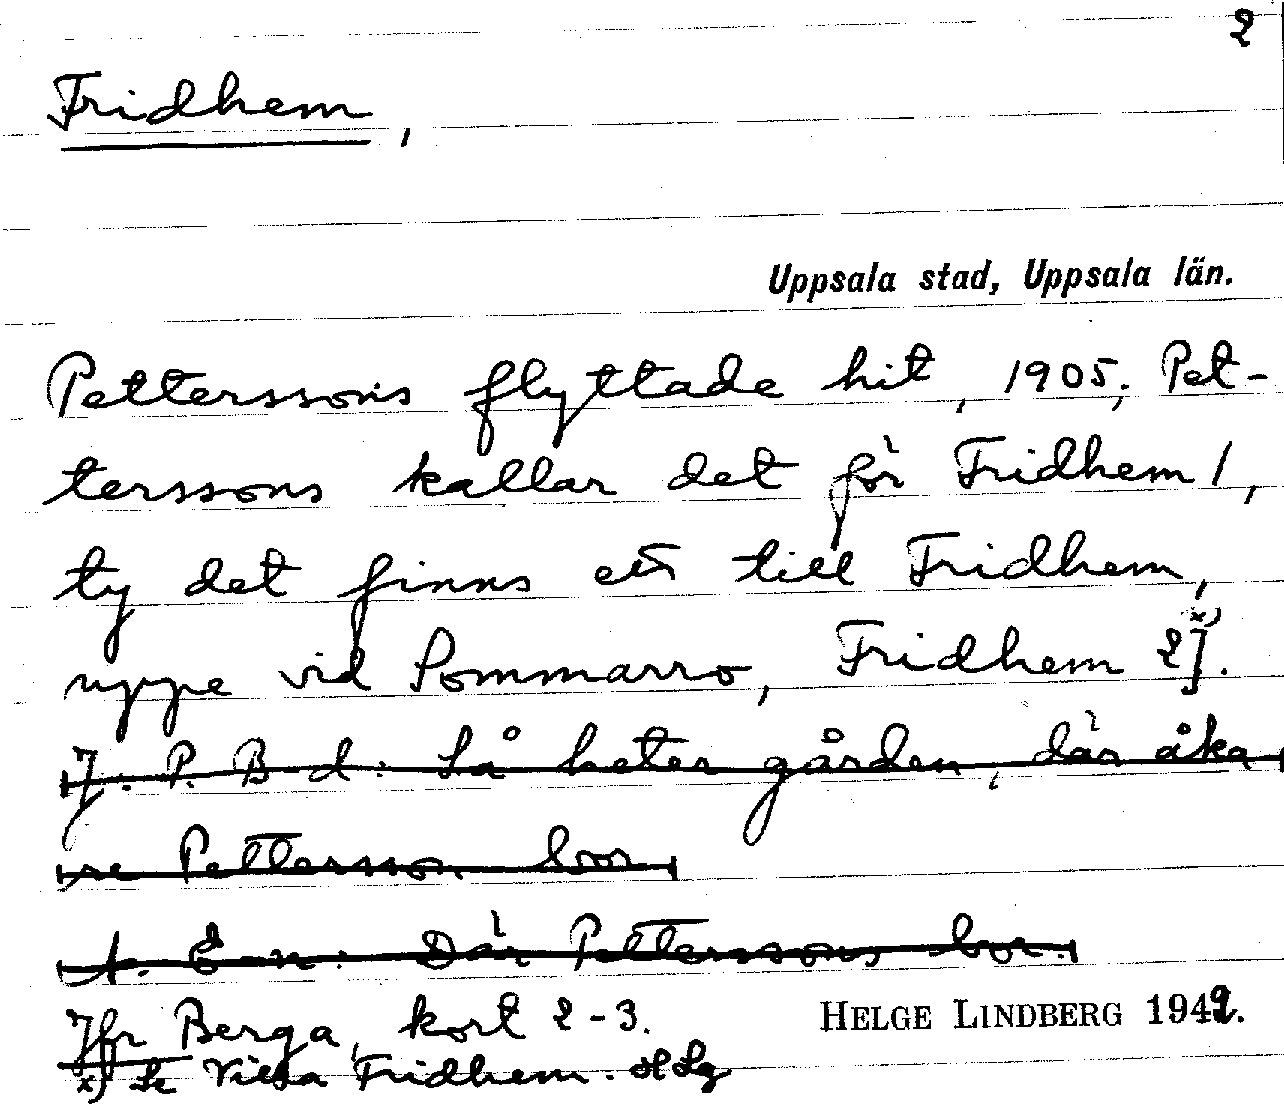 2
Fridhem,
Uppsala stad, Uppsala län.
Petterssons flyttade hit, 1905; Pet-
terssons kallar det för Fridhem 1,
ty det finns ett till Fridhem,
uppe vid Sommarro, Fridhem 2]. x)
J. P. B-d: Så heter gården, där åka
re Pettersson bor.
A. E-n: Där Petterssons bor.
Jfr Berga, kort 2-3.
HELGE LINDBERG 1949.
x) Se Villa Fridhem. HLg